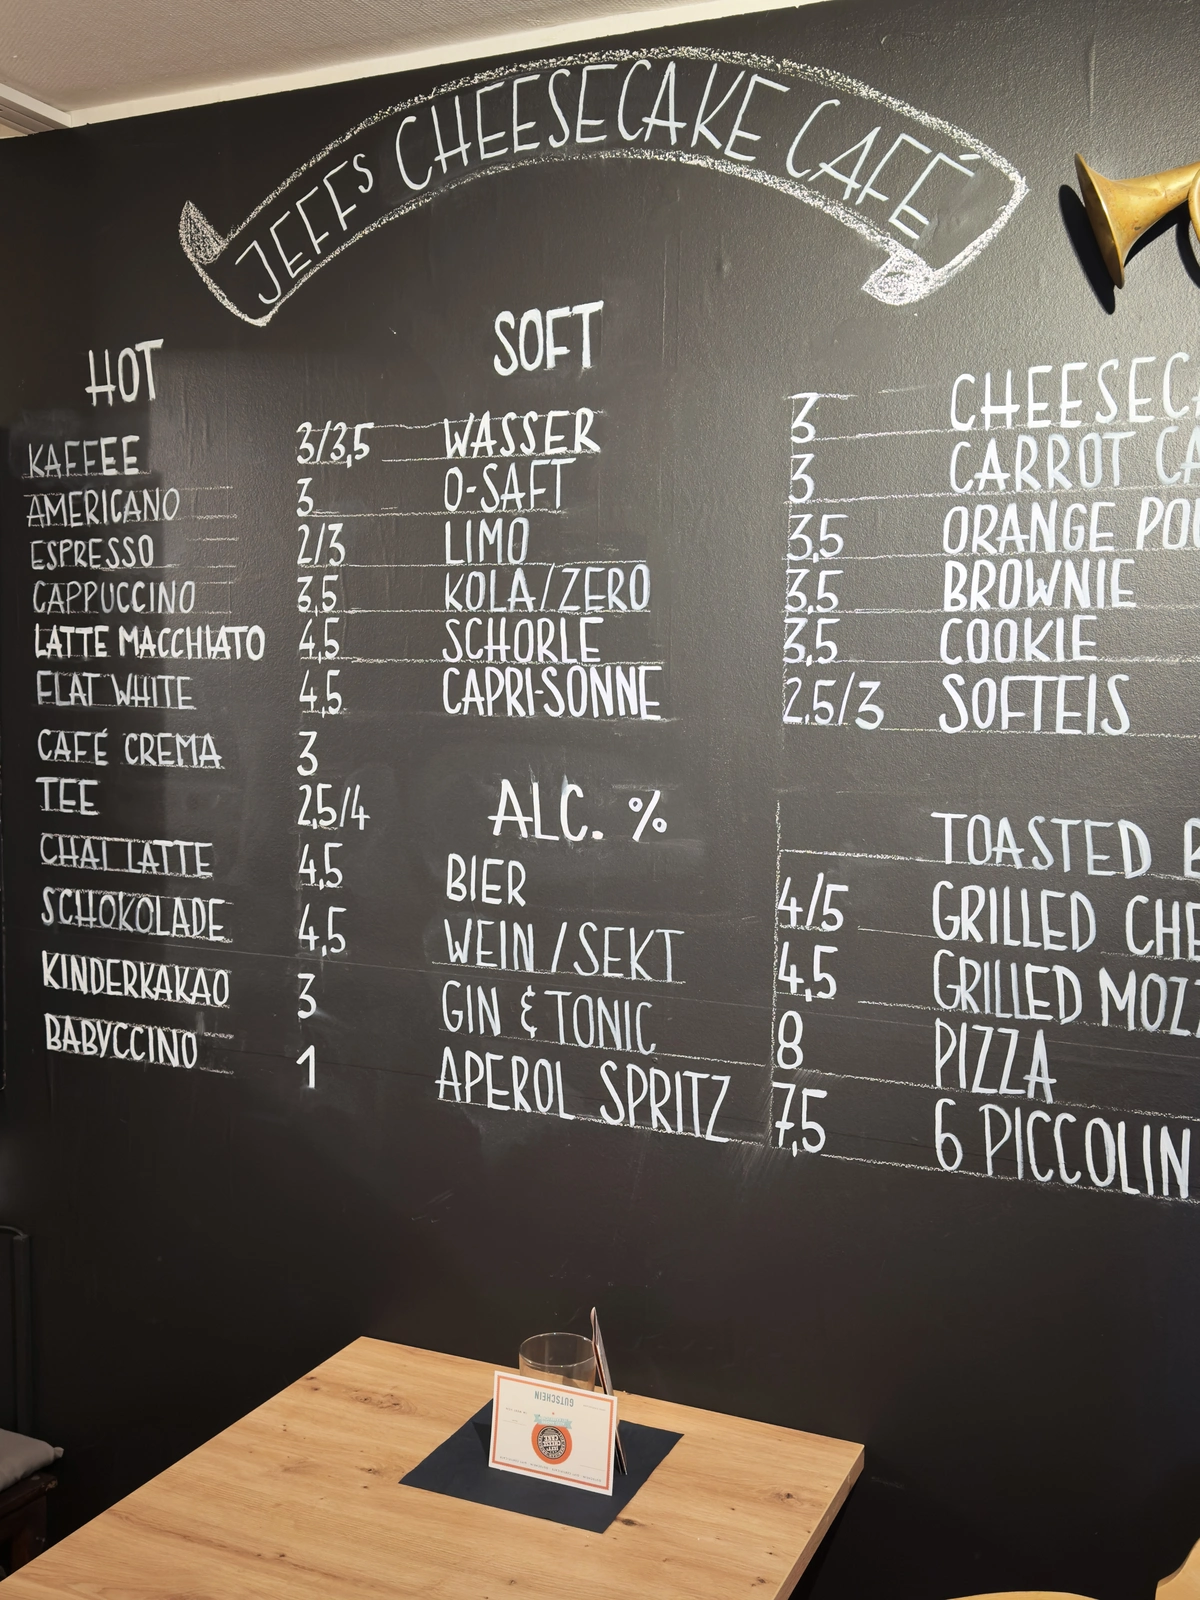 JEFFS CHEESECAKE CAFÉ
HOT
KAFFEE 3/3,5
AMERICANO 3
ESPRESSO 2/3
CAPPUCCINO 3,5
LATTE MACCHIATO 4,5
FLAT WHITE 4,5
CAFÉ CREMA 3
TEE 2,5/4
CHAI LATTE 4,5
SCHOKOLADE 4,5
KINDERKAKAO 3
BABYCCINO 1
SOFT
WASSER 3
O-SAFT 3
LIMO 3,5
KOLA/ZERO 3,5
SCHORLE 3,5
CAPRI-SONNE 2,5/3
ALC. %
BIER 4/5
WEIN/SEKT 4,5
GIN & TONIC 8
APEROL SPRITZ 7,5
CHEESEC
CARROT CA
ORANGE PO
BROWNIE
COOKIE
SOFTEIS
TOASTED
GRILLED CHE
GRILLED MOZZ
PIZZA
6 PICCOLIN
GUTSCHEIN